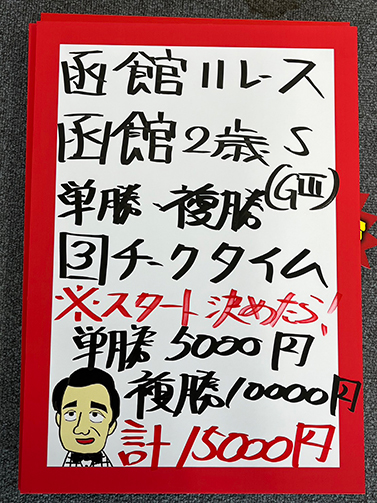 函館11レース
函館2歳S
(GIII)
単勝・複勝
3チークタイム
※スタート決めたら!
単勝5000円
複勝10000円
計15000円